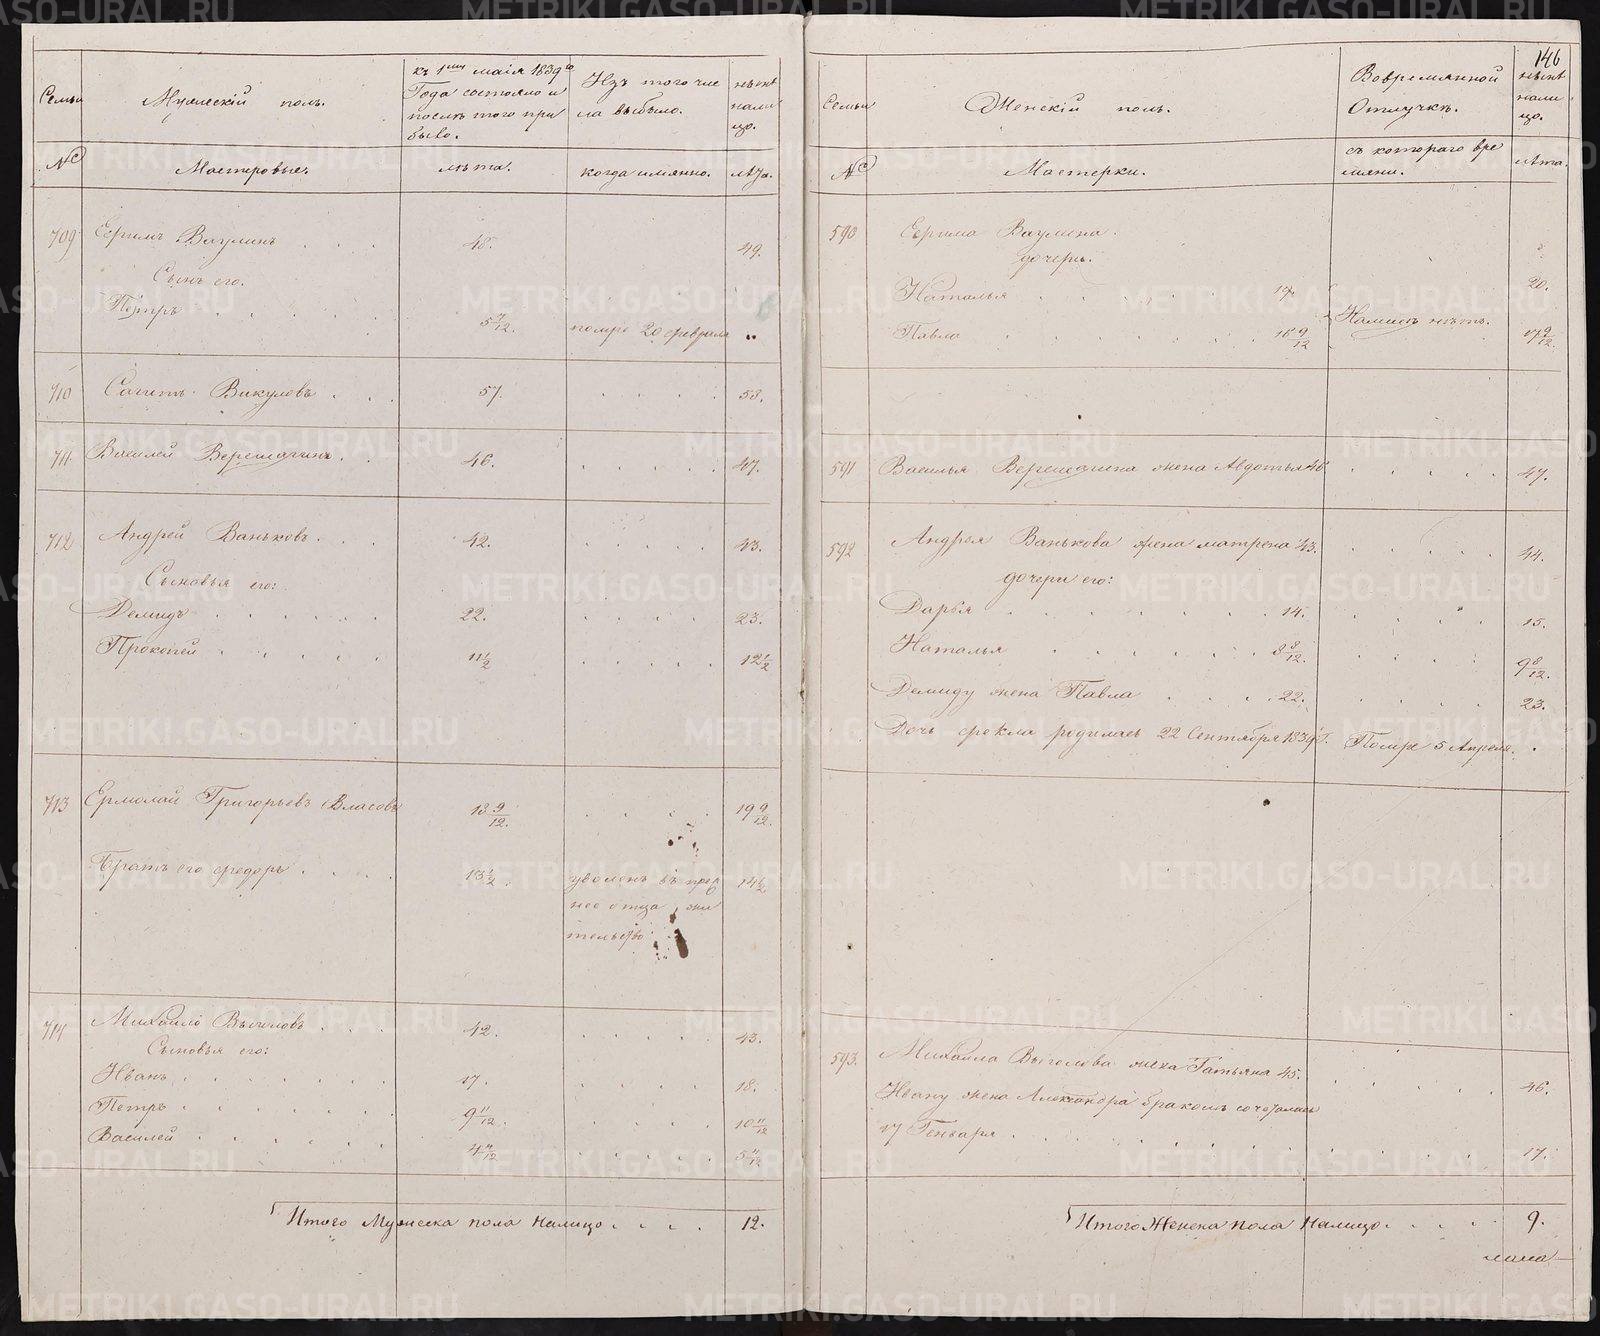 146
Семьи
Мужескій полъ.
къ 1му маія 1839го
Года состояло и
послѣ того при
было.
Изъ того чис
ла выбыло.
нынѣ
нали
цо.
№
Мастеровые.
лѣта.
когда имянно.
лѣта.
709 Ефимъ Ваулинъ . . . 48. 49.
Сынъ его.
Петръ . . . . 5 7/12. помре 20 февраля "
710 Викуловъ . . . 57. . . . . 58.
711 Василей Верещагинъ . . 46. . . . . 47.
712 Андрей Ваньковъ . . . 42. . . . . 43.
Сыновья его:
Демидъ . . . . . . 22. . . . . 23.
Прокопей . . . . . 11 1/2 . . . . . 12 1/2
713 Ермолай Григорьевъ Власовъ 18 9/12. . . . . 19 9/12.
Братъ его Федоръ . . . . 13 1/2. уволенъ въ преж 14 1/2
нее отца жи
тельство
714 Михайло Выголовъ . . . 42. . . . . 43.
Сыновья его:
Иванъ . . . . . . 17. . . . . 18.
Петръ . . . . . . 9 11/12. . . . . 10 11/12
Василей . . . . . . 4 11/12 . . . . 5 11/12
Итого Мужеска пола налицо . . . . 12.
Семьи
Женскій полъ.
Вовремянной
Отлучкѣ.
нынѣ
нали
цо.
№
Мастерки.
съ котораго вре
мяни.
лѣта.
590 Ефима Ваулина.
дочери.
Наталья . . . . . . 19. 20.
Павла . . . . . . . 16 9/12 17 9/12.
591 Василья Верещагина жена Авдотья 46 . . . . . 47.
592 Андрея Ванькова жена Матрена 43. . . . . . 44.
дочери его:
Дарья . . . . . . . 14. . . . . . 15.
Наталья . . . . . . . 8 8/12. . . . . 9 8/12.
Демиду жена Павла . . . . . 22. . . . . 23.
Дочь Фекла родилась 22 Сентября 1839 г. Помре 5 Апреля. .
593. Михайла Выголова жена Татьяна 45. . . . . . 46.
Ивану жена Александра бракомъ сочеталась
17 Генваря . . . . . . . . . . . 17.
Итого Женска пола налицо . . . . . 9.